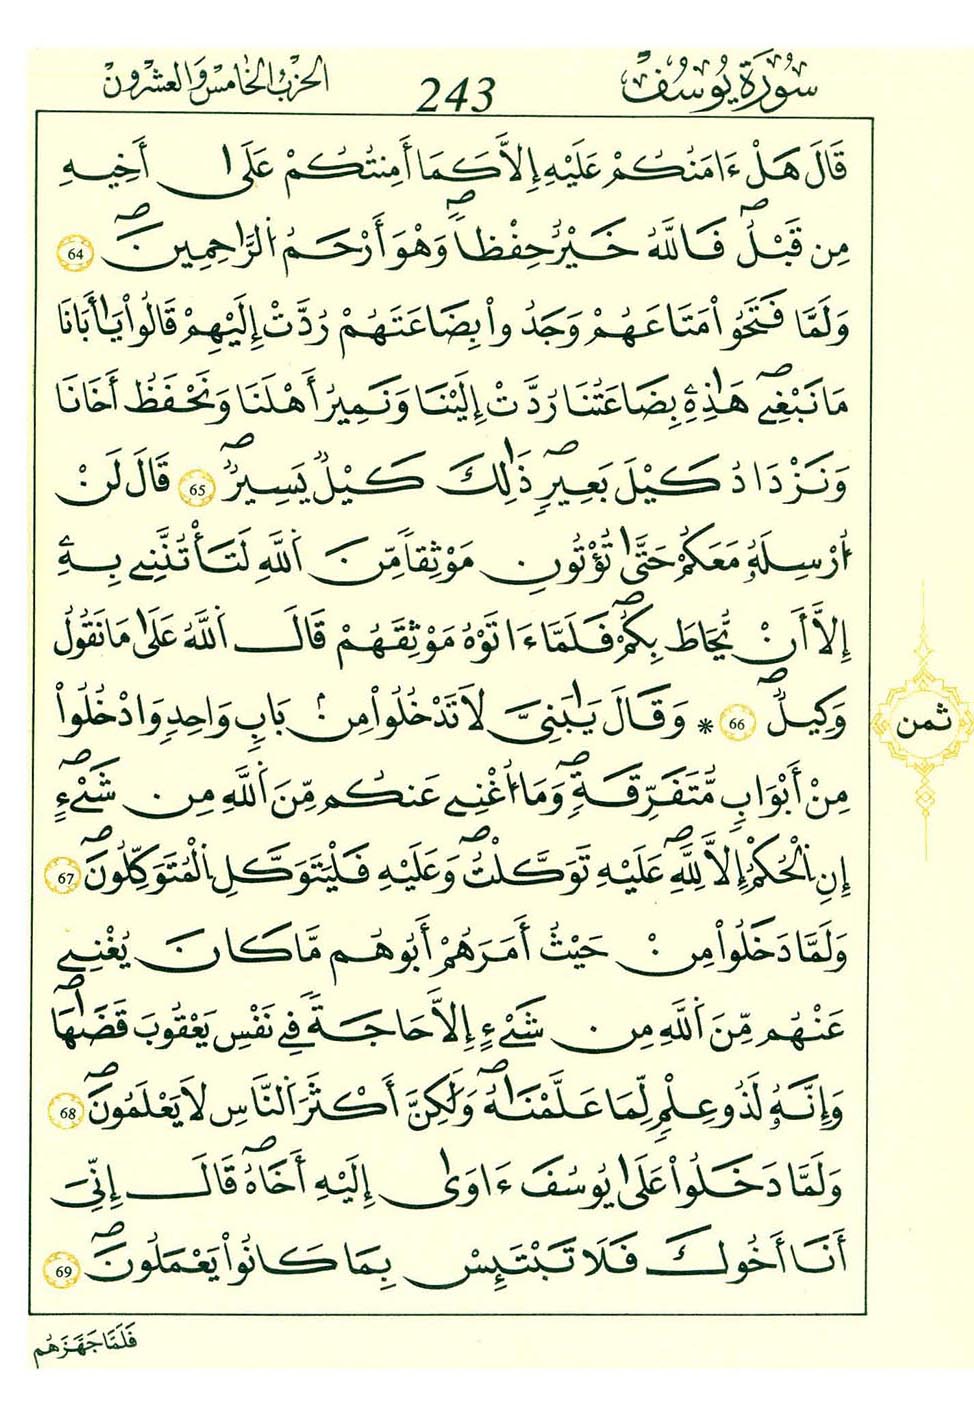 سُورَةُ يُوسُفَ 243 الحِزْبُ الخَامِسُ وَالعِشْرُونَ
قَالَ هَلْ ءَامَنُكُمْ عَلَيْهِ إِلاَّ كَمَا أَمِنتُكُمْ عَلَىٰ أَخِيهِ
مِن قَبْلُ صه فَاللَّهُ خَيْرٌ حِفْظاً صه وَهْوَ أَرْحَمُ الرَّاحِمِينَ صه 64
وَلَمَّا فَتَحُواْ مَتَاعَهُمْ وَجَدُواْ بِضَاعَتَهُمْ رُدَّتْ إِلَيْهِمْ قَالُواْ يَاأَبَانَا
مَا نَبْغِے صه هَٰذِهِۦ بِضَاعَتُنَا رُدَّتْ إِلَيْنَا وَنَمِيرُ أَهْلَنَا وَنَحْفَظُ أَخَانَا
وَنَزْدَادُ كَيْلَ بَعِيرٍ صه ذَٰلِكَ كَيْلٌ يَسِيرٌ صه 65 قَالَ لَنْ
أُرْسِلَهُۥ مَعَكُمْ حَتَّىٰ تُؤْتُونِ مَوْثِقاً مِّنَ اَللَّهِ لَتَأْتُنَّنِے بِهِۦ
إِلاَّ أَنْ يُّحَاطَ بِكُمْ صه فَلَمَّا ءَاتَوْهُ مَوْثِقَهُمْ قَالَ اَللَّهُ عَلَىٰ مَا نَقُولُ
وَكِيلٌ صه 66 * وَقَالَ يَٰبَنِيَّ لَا تَدْخُلُواْ مِنۢ بَابٍ وَاحِدٍ وَادْخُلُواْ
مِنْ أَبْوَابٍ مُّتَفَرِّقَةٍ صه وَمَا أُغْنِے عَنكُم مِّنَ اَللَّهِ مِن شَےْءٍ صه
إِنِ اِلْحُكْمُ إِلاَّ لِلَّهِ صه عَلَيْهِ تَوَكَّلْتُ صه وَعَلَيْهِ فَلْيَتَوَكَّلِ اِلْمُتَوَكِّلُونَ صه 67
وَلَمَّا دَخَلُواْ مِنْ حَيْثُ أَمَرَهُمْ أَبُوهُم مَّا كَانَ يُغْنِے
عَنْهُم مِّنَ اَللَّهِ مِن شَےْءٍ إِلاَّ حَاجَةً فِے نَفْسِ يَعْقُوبَ قَضَىٰهَا صه
وَإِنَّهُۥ لَذُو عِلْمٍ لِّمَا عَلَّمْنَٰهُ صه وَلَٰكِنَّ أَكْثَرَ اَلنَّاسِ لَا يَعْلَمُونَ صه 68
وَلَمَّا دَخَلُواْ عَلَىٰ يُوسُفَ ءَاوَىٰ إِلَيْهِ أَخَاهُ صه قَالَ إِنِّيَ
أَنَا أَخُوكَ فَلَا تَبْتَئِسْ بِمَا كَانُواْ يَعْمَلُونَ صه 69
ثمن
فَلَمَّا جَهَّزَهُم